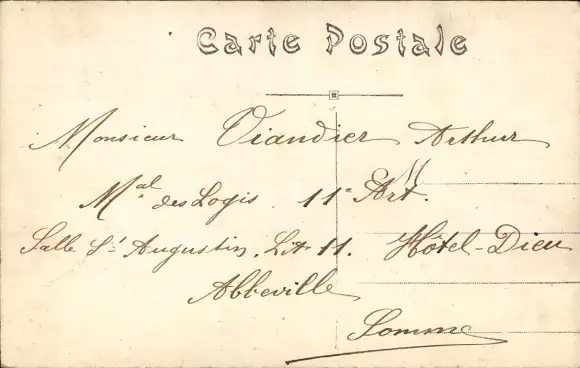 Carte Postale
Monsieur Viandier Arthur
Mal des Logis. 11e Art.
Salle St Augustin. Lit 11. Hôtel-Dieu
Abbeville
Somme